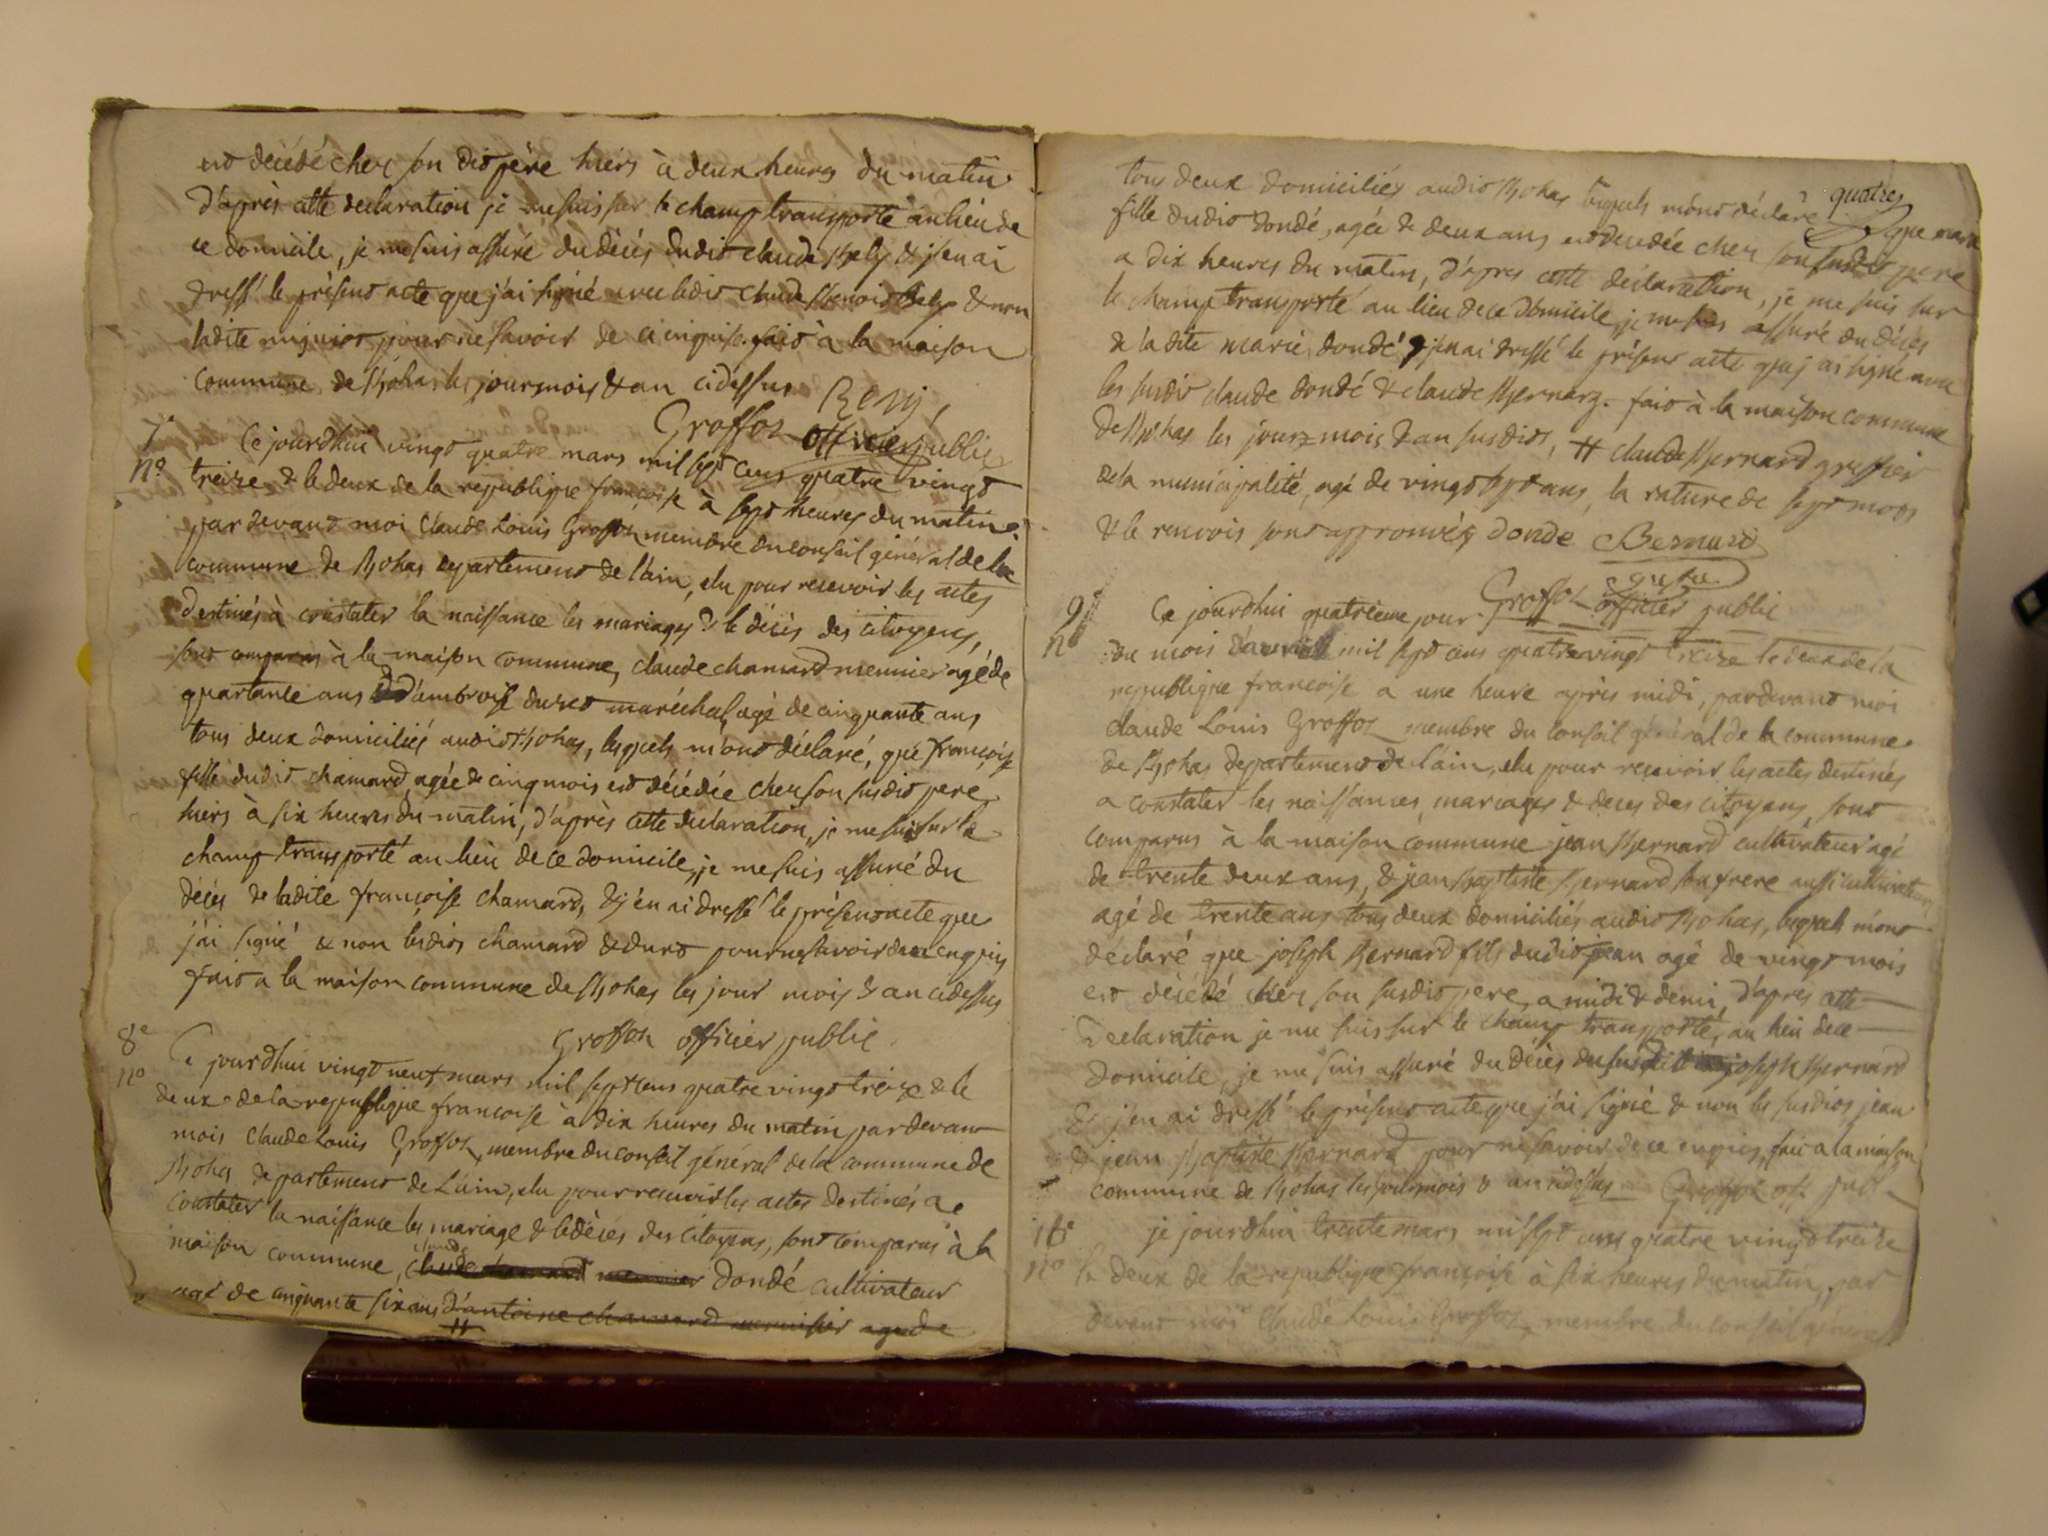 est décédé chez son dit père hiers à deux heures du matin
d'après cette declaration je me suis sur le champ transporté au lieu de
ce domicile, je me suis assuré du décés dudit claude Bely & j'en ai
dressé le présent acte que j'ai signé avec ledit claude benoit Bely & non
ladite pour ne savoir de ce inquise. fait à la maison
commune de Bohas les jours mois & an cidessus Bely
Groffoz officier public
7e
no
Ce jourdhui vingt quatre mars mil sept cens quatre vingt
treize & le deux de la republique françoise à sept heures du matin
par devant moi Claude Louis Groffoz membre du conseil général de la
commune de Bohas departement de l'ain, elu pour recevoir les actes
destinés à constater la naissance les mariages & le décès des citoyens,
sont comparus à la maison commune, claude chamard meunier agé de
quarante ans & d'ambroise duret maréchal, agé de cinquante ans
tous deux domiciliés audit Bohas, lesquels m'ont déclaré, que françoise
fille dudit chamard, agée de cinq mois est décédée chez son susdit pere
hiers à six heures du matin, d'après cette declaration, je me suis sur le
champ transporté au lieu de ce domicile, je me suis assuré du
décés de ladite françoise chamard, & j'en ai dressé le présent acte que
j'ai signé & non lesdits chamard & duret pour ne savoir de ce enquis
fait a la maison commune de Bohas les jour mois & an cidessus
Groffoz officier public
8e
no
Ce jourdhui vingt neuf mars mil sept cens quatre vingt treize & le
deux de la republique francoise à dix heures du matin par devant
mois Claude Louis Groffoz, membre du conseil général de la commune de
Bohas departement de L'ain, elu pour recevoir les actes destinés a
constater la naissance les mariage & le décés des citoyens, sont comparus à la
claude
maison commune, claude chamard meunier dondé cultivateur
agé de cinquante six ans d'antoine chamard agé de
#
quatre
tous deux domiciliés audit Bohas lesquels m'ont déclaré que marie
fille dudit dondé, agée de deux ans est decedée chez son susdit pere
a dix heures du matin, d'apres cette déclaration, je me suis sur
le champ transporté au lieu de ce domicile je me suis assuré du décés
de ladite marie dondé & j'en ai dressé le présent acte que j'ai signé avec
les susdit claude dondé & claude Bernard. fait à la maison commune
de Bohas les jours mois & an susdits, # claude Bernard greffier
de la municipalité, agé de vingt sept ans, la rature de sept mots
& le renvois sont approuvés donde Bernard
greffier
Groffoz officier public
9e
no
Ce jourdhui quatrieme jour
du mois d'avril mil sept cens quatre vingt treize le deux de la
republique françoise a une heure après midi, pardevant moi
claude Louis Groffoz membre du conseil général de la commune
de Bohas departement de l'ain, elu pour recevoir les actes destinés
a constater les naissances, mariages & deces des citoyens, sont
comparus à la maison commune jean Bernard cultivateur agé
de trente deux ans, & jean Baptiste Bernard son frere aussi cultivateur
agé de trente ans tous deux domiciliés audit Bohas, lesquels m'ont
déclaré que joseph Bernard fils dudit jean agé de vingt mois
est décédé chez son susdit pere, a midi & demi, d'après cette
declaration je me suis sur le champ transporté, au lieu de ce
domicile, je me suis assuré du décés du susdit joseph Bernard
& j'en ai dressé le présent acte que j'ai signé & non les susdits jean
& jean Baptiste Bernard pour ne savoir de ce enquis, fait a la maison
commune de Bohas les jours mois & an cidessus Groffoz off. publ.
no
je jourdhui trente mars mil sept cens quatre vingt treize
le deux de la republique françoise à six heures du matin, par
devant moi Claude Louis Groffoz membre du conseil général